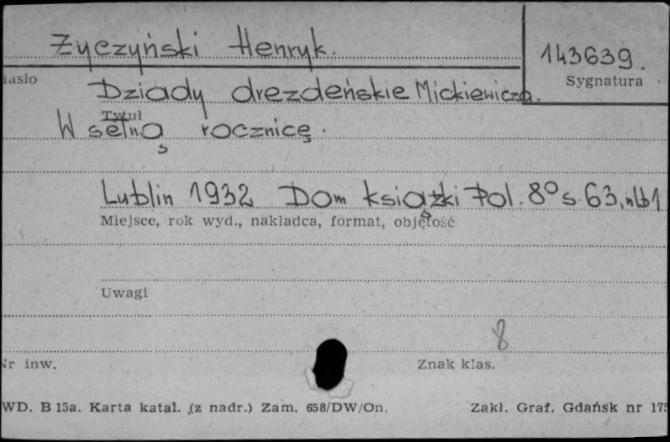 Życzyński Henryk.
143639.
Sygnatura
Dziady drezdeńskie Mickiewicza.
Tytuł
W setną rocznicę.
Lublin 1932 Dom książki Pol. 8° s. 63, nlb 1
Miejsce, rok wyd., nakładca, format, objętość
Uwagi
8
Nr inw.
Znak klas.
WD. B 15a. Karta katal. (z nadr.) Zam. 658/DW/On.
Zakł. Graf. Gdańsk nr